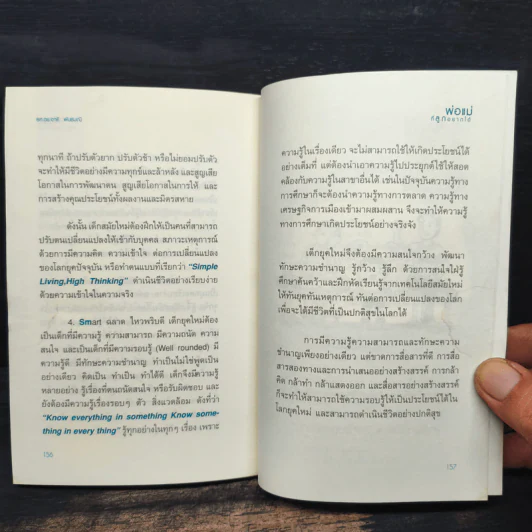 ทุกนาที ถ้าปรับตัวยาก ปรับตัวช้า หรือไม่ยอมปรับตัว
จะทำให้มีชีวิตอย่างมีความทุกข์และล้าหลัง และสูญเสีย
โอกาสในการพัฒนาตน สูญเสียโอกาสในการให้ และ
การสร้างคุณประโยชน์ทั้งผลงานและมิตรสหาย
ดังนั้น เด็กสมัยใหม่ต้องฝึกให้เป็นคนที่สามารถ
ปรับตนเปลี่ยนแปลงให้เข้ากับบุคคล สภาวะเหตุการณ์
ด้วยการมีความคิด ความเข้าใจ ต่อการเปลี่ยนแปลง
ของโลกยุคปัจจุบัน หรือทำตนแบบที่เรียกว่า "Simple
Living,High Thinking" ดำเนินชีวิตอย่างเรียบง่าย
ด้วยความเข้าใจในความจริง
4. Smart ฉลาด ไหวพริบดี เด็กยุคใหม่ต้อง
เป็นเด็กที่มีความรู้ ความสามารถ มีความถนัด ความ
สนใจ และเป็นเด็กที่มีความรอบรู้ (Well rounded) มี
ความรู้ดี มีทักษะความชำนาญ ทำเป็นไม่ใช่พูดเป็น
อย่างเดียว คิดเป็น ทำเป็น ทำได้ดี เด็กจึงมีความรู้
หลายอย่าง รู้เรื่องที่ตนถนัดสนใจ หรือรับผิดชอบ และ
ยังต้องมีความรู้เรื่องรอบๆ ตัว สิ่งแวดล้อม ดังที่ว่า
"Know everything in something Know some-
thing in every thing" รู้ทุกอย่างในทุกๆ เรื่อง เพราะ
156
พ่อแม่
ที่ลูกอยากได้
ความรู้ในเรื่องเดียว จะไม่สามารถใช้ให้เกิดประโยชน์ได้
อย่างเต็มที่ แต่ต้องนำเอาความรู้ไปประยุกต์ใช้ให้สอด
คล้องกับความรู้ในสาขาอื่นได้ เช่นในปัจจุบันความรู้ทาง
การศึกษาก็จะต้องนำความรู้ทางการตลาด ความรู้ทาง
เศรษฐกิจการเมืองเข้ามาผสมผสาน จึงจะทำให้ความรู้
ทางการศึกษาเกิดประโยชน์อย่างจริงจัง
เด็กยุคใหม่จึงต้องมีความสนใจกว้าง พัฒนา
ทักษะความชำนาญ รู้กว้าง รู้ลึก ด้วยการสนใจใฝ่รู้
ศึกษาค้นคว้าและฝึกหัดเรียนรู้จากเทคโนโลยีสมัยใหม่
ให้ทันยุคทันเหตุการณ์ ทันต่อการเปลี่ยนแปลงของโลก
เพื่อจะได้มีชีวิตที่เป็นปกติสุขในโลกได้
การมีความรู้ความสามารถและทักษะความ
ชำนาญเพียงอย่างเดียว แต่ขาดการสื่อสารที่ดี การสื่อ
สารสองทางและการนำเสนออย่างสร้างสรรค์ การกล้า
คิด กล้าทำ กล้าแสดงออก และสื่อสารอย่างสร้างสรรค์
ก็จะทำให้สามารถใช้ความรอบรู้ให้เป็นประโยชน์ได้ใน
โลกยุคใหม่ และสามารถดำเนินชีวิตอย่างปกติสุข
157